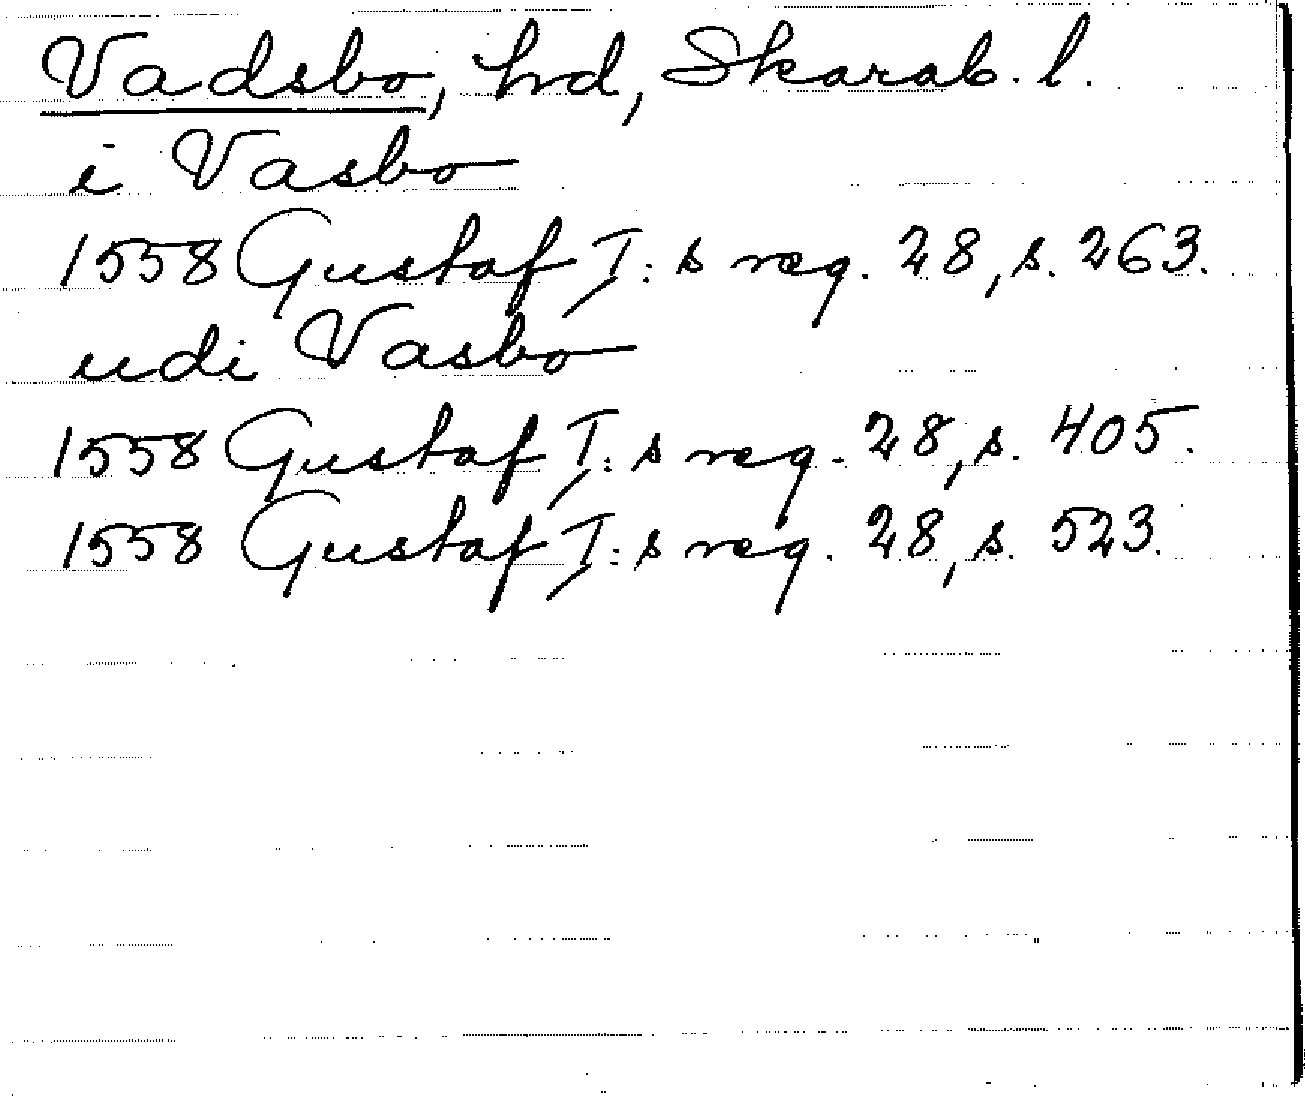 Vadsbo, hd, Skarab. l.
i Vasbo
1558 Gustaf I: s reg. 28, s. 263.
udi Vasbo
1558 Gustaf I: s reg. 28, s. 405.
1558 Gustaf I: s reg. 28, s. 523.